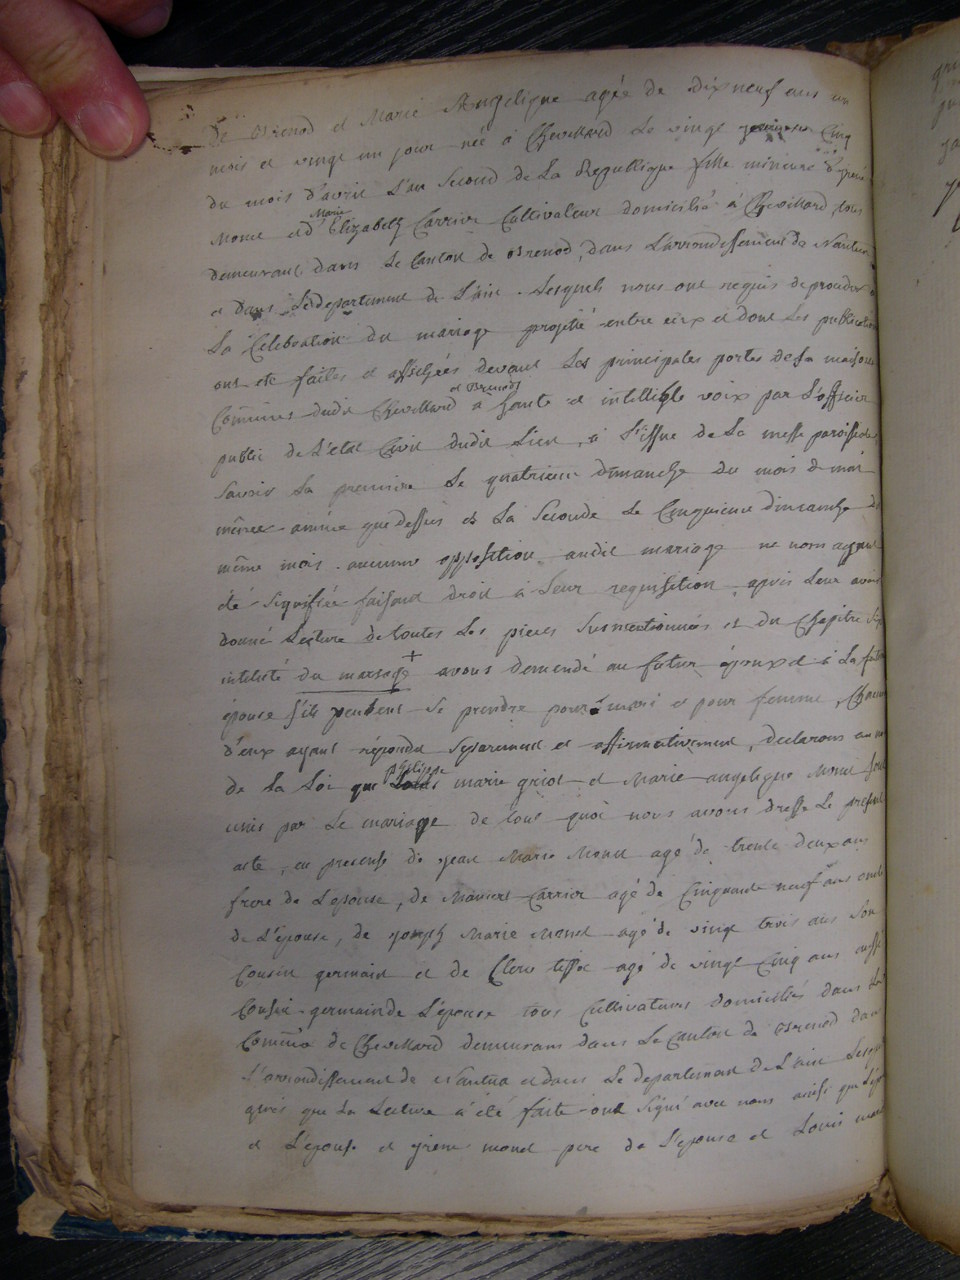 De Brenod et Marie Angelique agée de dixneuf ans un
mois et vingt un jour née à Chevillard le vingt cinq
du mois d'avril l'an second de la Republique fille mineure d'yreni
Monet et d' Marie Elizabeth Carrier Cultivateur domicilié à Chevillard, tous
demeurant dans le Canton de Brenod, dans l'arrondissement de Nantua
et dans le departement de l'ain. lesquels nous ont requis de proceder a
la Celebration du mariage projetté entre eux et dont les publication
ont ete faites et affichées devant les principales portes de la maison
Communes dudit Chevillard et Brenods a haute et intelligible voix par l'officier
public de l'etat Civil dudit lieu, à l'issue de la messe paroissiale
savoir la premiere le quatrieme dimanche du mois de mai
même année que dessus et la seconde le Cinquieme dimanche du
même mois. aucunne opposition audit mariage ne nous ayant
été signifiée faisant droit à leur requisition, après leur avoir
donné lecture de toutes les pieces susmentionnés et du Chapitre six
intitulé du mariage + avons demendé au futur époux et à la future
épouse s'ils veulent se prendre pour mari et pour femme, Chacun
d'eux ayant répondu separement et affirmativement, declarons au nom
de la loi que philippe marie griot et Marie angelique Monet sont
unis par le mariage de tout quoi nous avons dressé le présent
acte, en presence de jean Marie Monet agé de trente deux ans
frere de l'epouse, de Carrier agé de Cinquante neuf ans oncle
de l'épouse, de joseph Marie Monet agé de vingt trois ans son
Cousin germain et de Clere agé de vingt Cinq ans aussi
Cousin germain de l'épouse tous Cultivateurs domiciliés dans la
Commune de Chevillard demeurans dans le Canton de Brenod dans
l'arrondissement de Nantua et dans le departement de l'ain
après que la lecture a été faite ont signé avec nous ainsi que l'époux
et l'épouse et monet pere de l'épouse et Louis